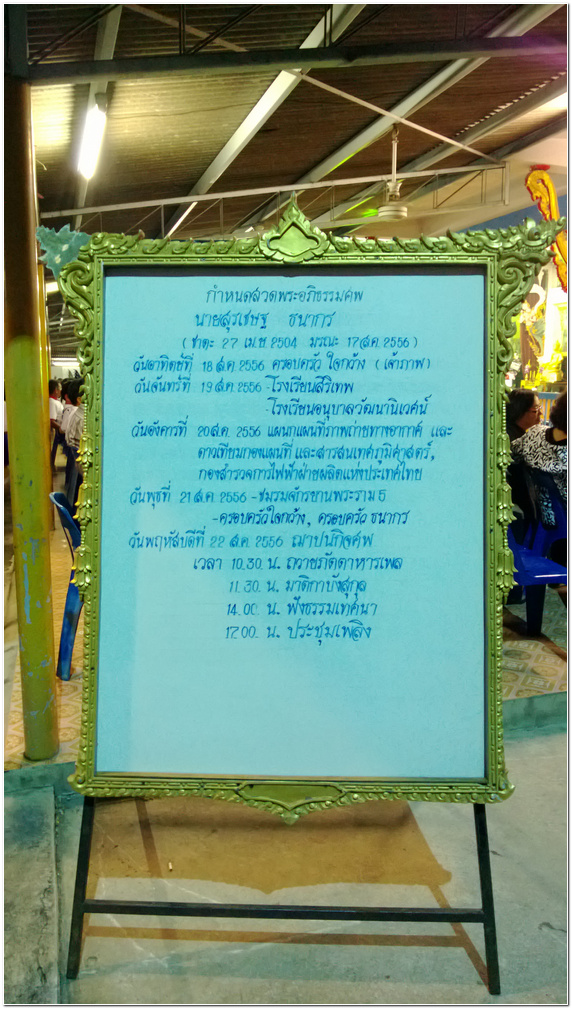 กำหนดสวดพระอภิธรรมศพ
นายสุรเชษฐ ธนากร
(ชาตะ 27 เม.ย 2504 มรณะ 17 ส.ค. 2556)
วันอาทิตย์ที่ 18 ส.ค. 2556 ครอบครัว ใจกว้าง (เจ้าภาพ)
วันจันทร์ที่ 19 ส.ค. 2556 -โรงเรียนสิริเทพ
-โรงเรียนอนุบาลวัฒนานิเวศน์
วันอังคารที่ 20 ส.ค. 2556 แผนกแผนที่ภาพถ่ายทางอากาศ และ
ดาวเทียมกองแผนที่ และสารสนเทศภูมิศาสตร์,
กองสำรวจการไฟฟ้าฝ่ายผลิตแห่งประเทศไทย
วันพุธที่ 21 ส.ค. 2556 -ชมรมจักรยานพระราม 5
-ครอบครัวใจกว้าง, ครอบครัว ธนากร
วันพฤหัสบดีที่ 22 ส.ค. 2556 ฌาปนกิจศพ
เวลา 10.30 น. ถวายภัตตาหารเพล
11.30 น. มาติกาบังสุกุล
14.00 น. ฟังธรรมเทศนา
17.00 น. ประชุมเพลิง